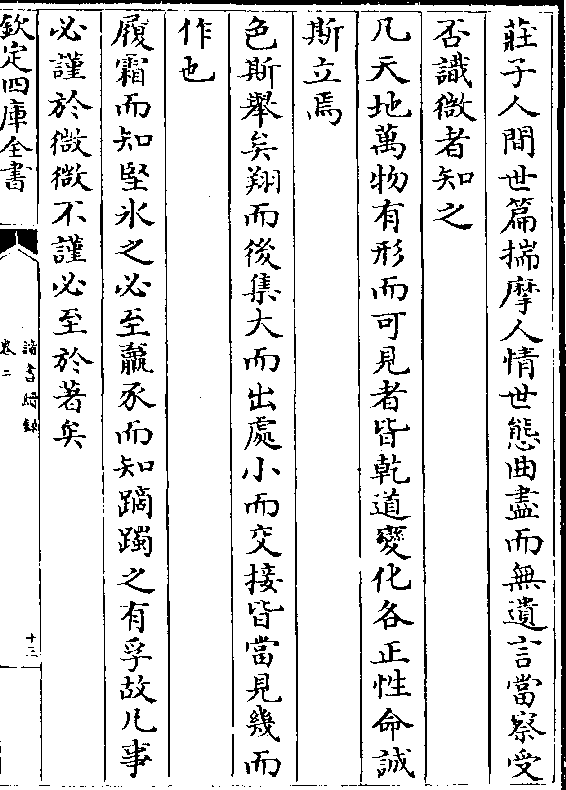 莊子人間世篇揣摩人情世態曲盡而無遺言當察受
否識微者知之
凡天地萬物有形而可見者皆乾道變化各正性命誠
斯立焉
色斯舉矣翔而後集大而出處小而交接皆當見幾而
作也
履霜而知堅氷之必至羸豕而知蹢躅之有孚故凡事
必謹於微微不謹必至於著矣
欽定四庫全書
讀書續錄
卷二
十三